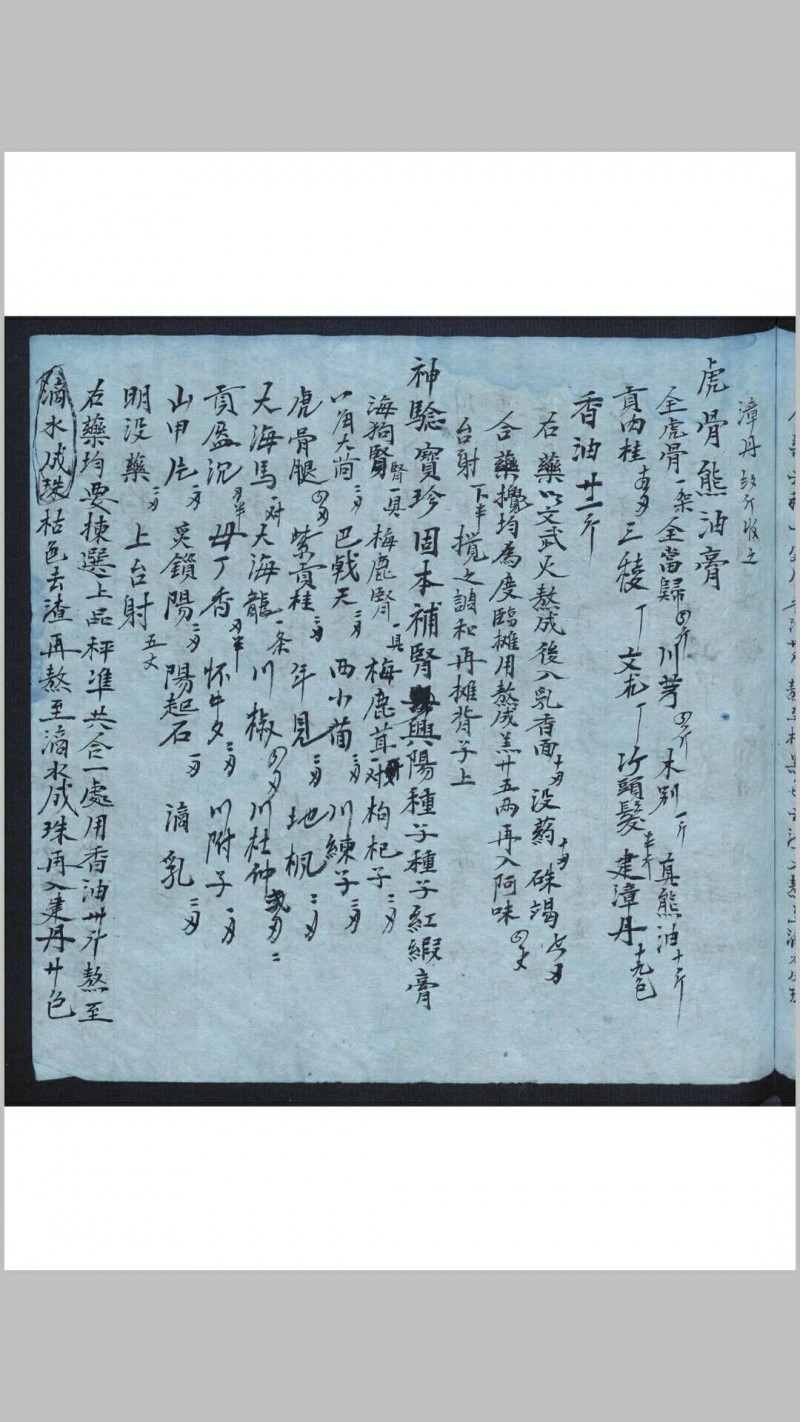 漳丹 斤收之
虎骨熊油膏
全虎骨一架 全當歸四斤 川芎四斤 木别一斤 真熊油十斤
貢肉桂 三稜 文尤 竹頭髮 建漳丹
香油廿一斤
右藥以文武火熬成後入乳香面十刃 没药十刃 硃竭七刃
合藥攪均為度臨攤用熬成羔廿五兩再入阿味四丈
台射 攪之調和再攤背子上
神驗寶珍固本補腎興陽種子種子紅緞膏
海狗腎一具 梅鹿腎一具 梅鹿茸一对 枸杞子二刃
八角大茴二刃 巴戟天二刃 西小茴三刃 川練子三刃
虎骨腿四刃 紫貢桂二刃 年見三刃 地楓二刃
天海馬一对 大海龍一条 川椒四刃 川杜仲
貢盔沉刃半 毋丁香刃半 怀牛夕三刃 川附子一刃
山甲片一刃 炙鎖陽二刃 陽起石一刃 滴乳二刃
明没藥二刃 上台射五丈
右藥均要揀選上品秤准共合一處用香油卅斤熬至
滴水成珠枯色去渣再熬至滴水成珠再入建丹廿色